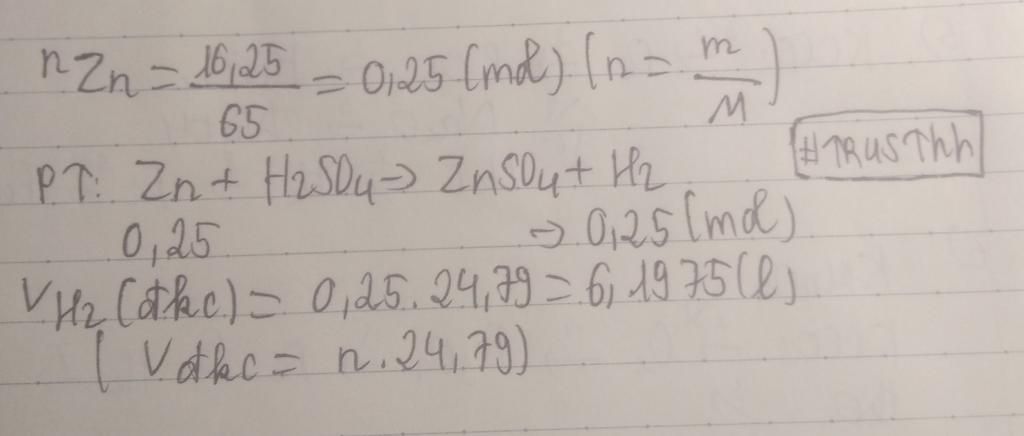 nZn = 16,25/65 = 0,25 (mol) (n = m/M)
#TRUSThh
PT: Zn + H2SO4 → ZnSO4 + H2
0,25 → 0,25 (mol)
VH2 (đkc) = 0,25.24,79 = 6,1975 (l)
(Vđkc = n.24,79)